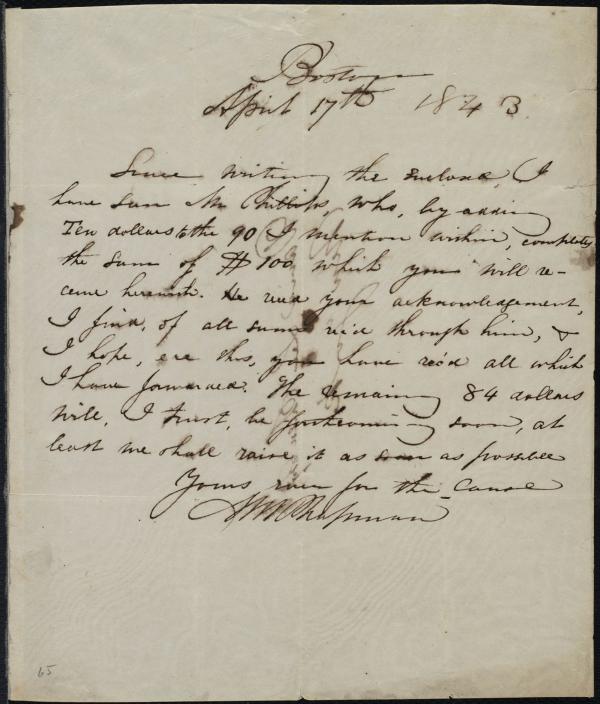 Boston
April 17th 1843.
Since writing the enclosed, I
have seen Mr Phillips, who, by adding
Ten dollars to the 90 I mention within, completes
the sum of $100 which you will re-
ceive herewith. He rec'd your acknowledgement,
I find, of all sums rec'd through him, &
I hope, ere this, you have rec'd all which
I have forwarded. The remaining 84 dollars
will, I trust, be forthcoming soon, at
least we shall raise it as soon as possible
Yours ever for the cause
Chapman
65